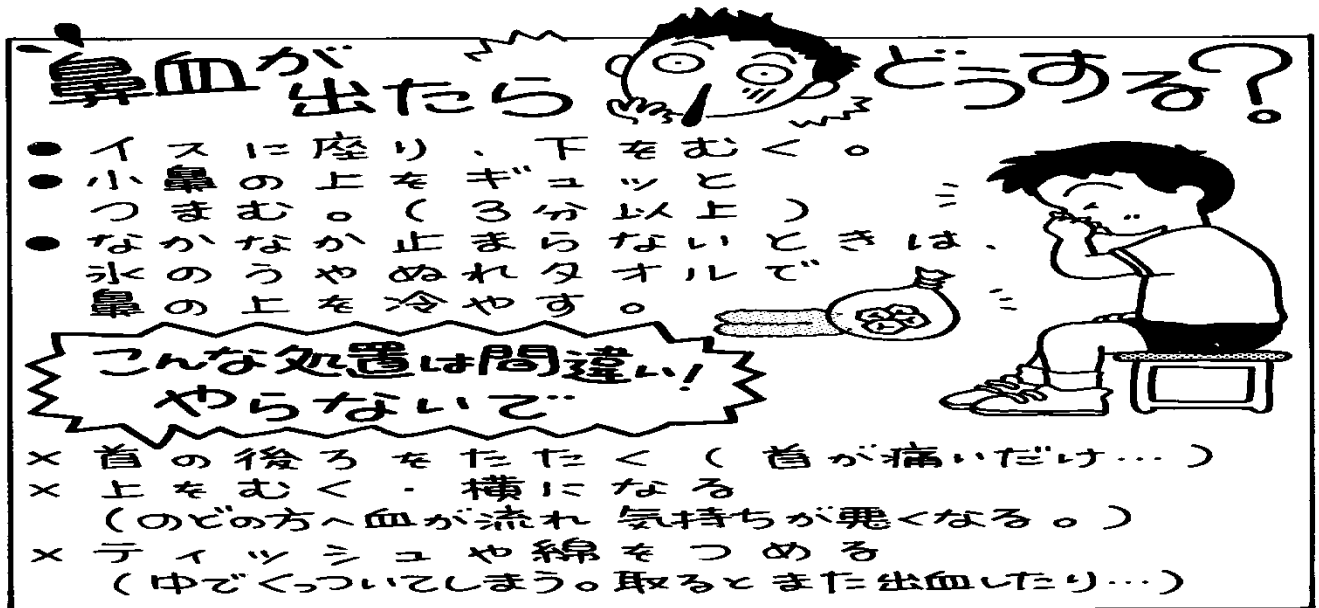 鼻血が出たら どうする?
● イスに座り、下をむく。
● 小鼻の上をギュッと
つまむ。(3分以上)
● なかなか止まらないときは、
氷のうやぬれタオルで
鼻の上を冷やす。
こんな処置は間違い!
やらないで
× 首の後ろをたたく(首が痛いだけ…)
× 上をむく・横になる
(のどの方へ血が流れ 気持ちが悪くなる。)
× ティッシュや綿をつめる
(中でくっついてしまう。取るとまた出血したり…)